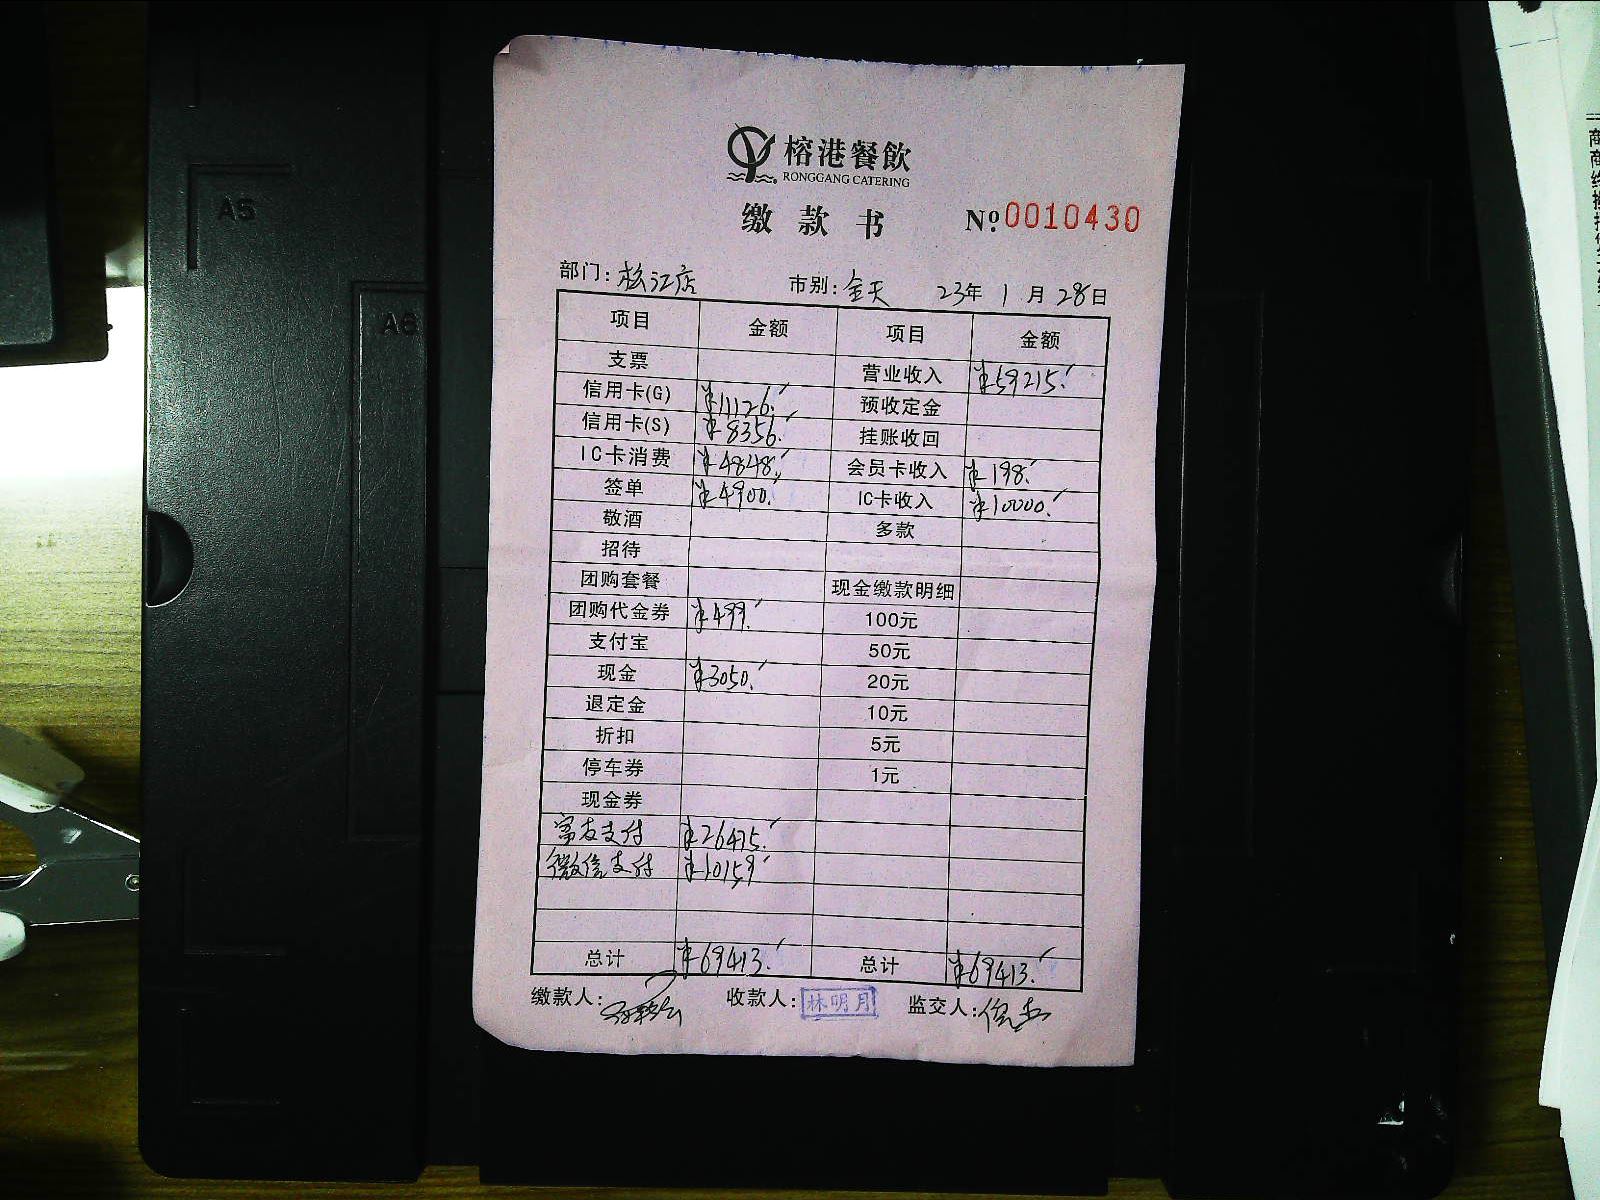 A5
A6
榕港餐飲
RONGGANG CATERING
缴款书 Nº:0010430
部门:松江店 市别:全天 23年1月28日
项目 金额 项目 金额
支票 营业收入 ¥59215.
信用卡(G) ¥11126. 预收定金
信用卡(S) ¥8356. 挂账收回
IC卡消费 ¥4848. 会员卡收入 ¥198.
签单 ¥4900. IC卡收入 ¥10000.
敬酒 多款
招待
团购套餐 现金缴款明细
团购代金券 ¥499. 100元
支付宝 50元
现金 ¥3050. 20元
退定金 10元
折扣 5元
停车券 1元
现金券
富友支付 ¥26475.
微信支付 ¥10159
总计 ¥69413. 总计 ¥69413.
缴款人: 收款人:林明月 监交人: